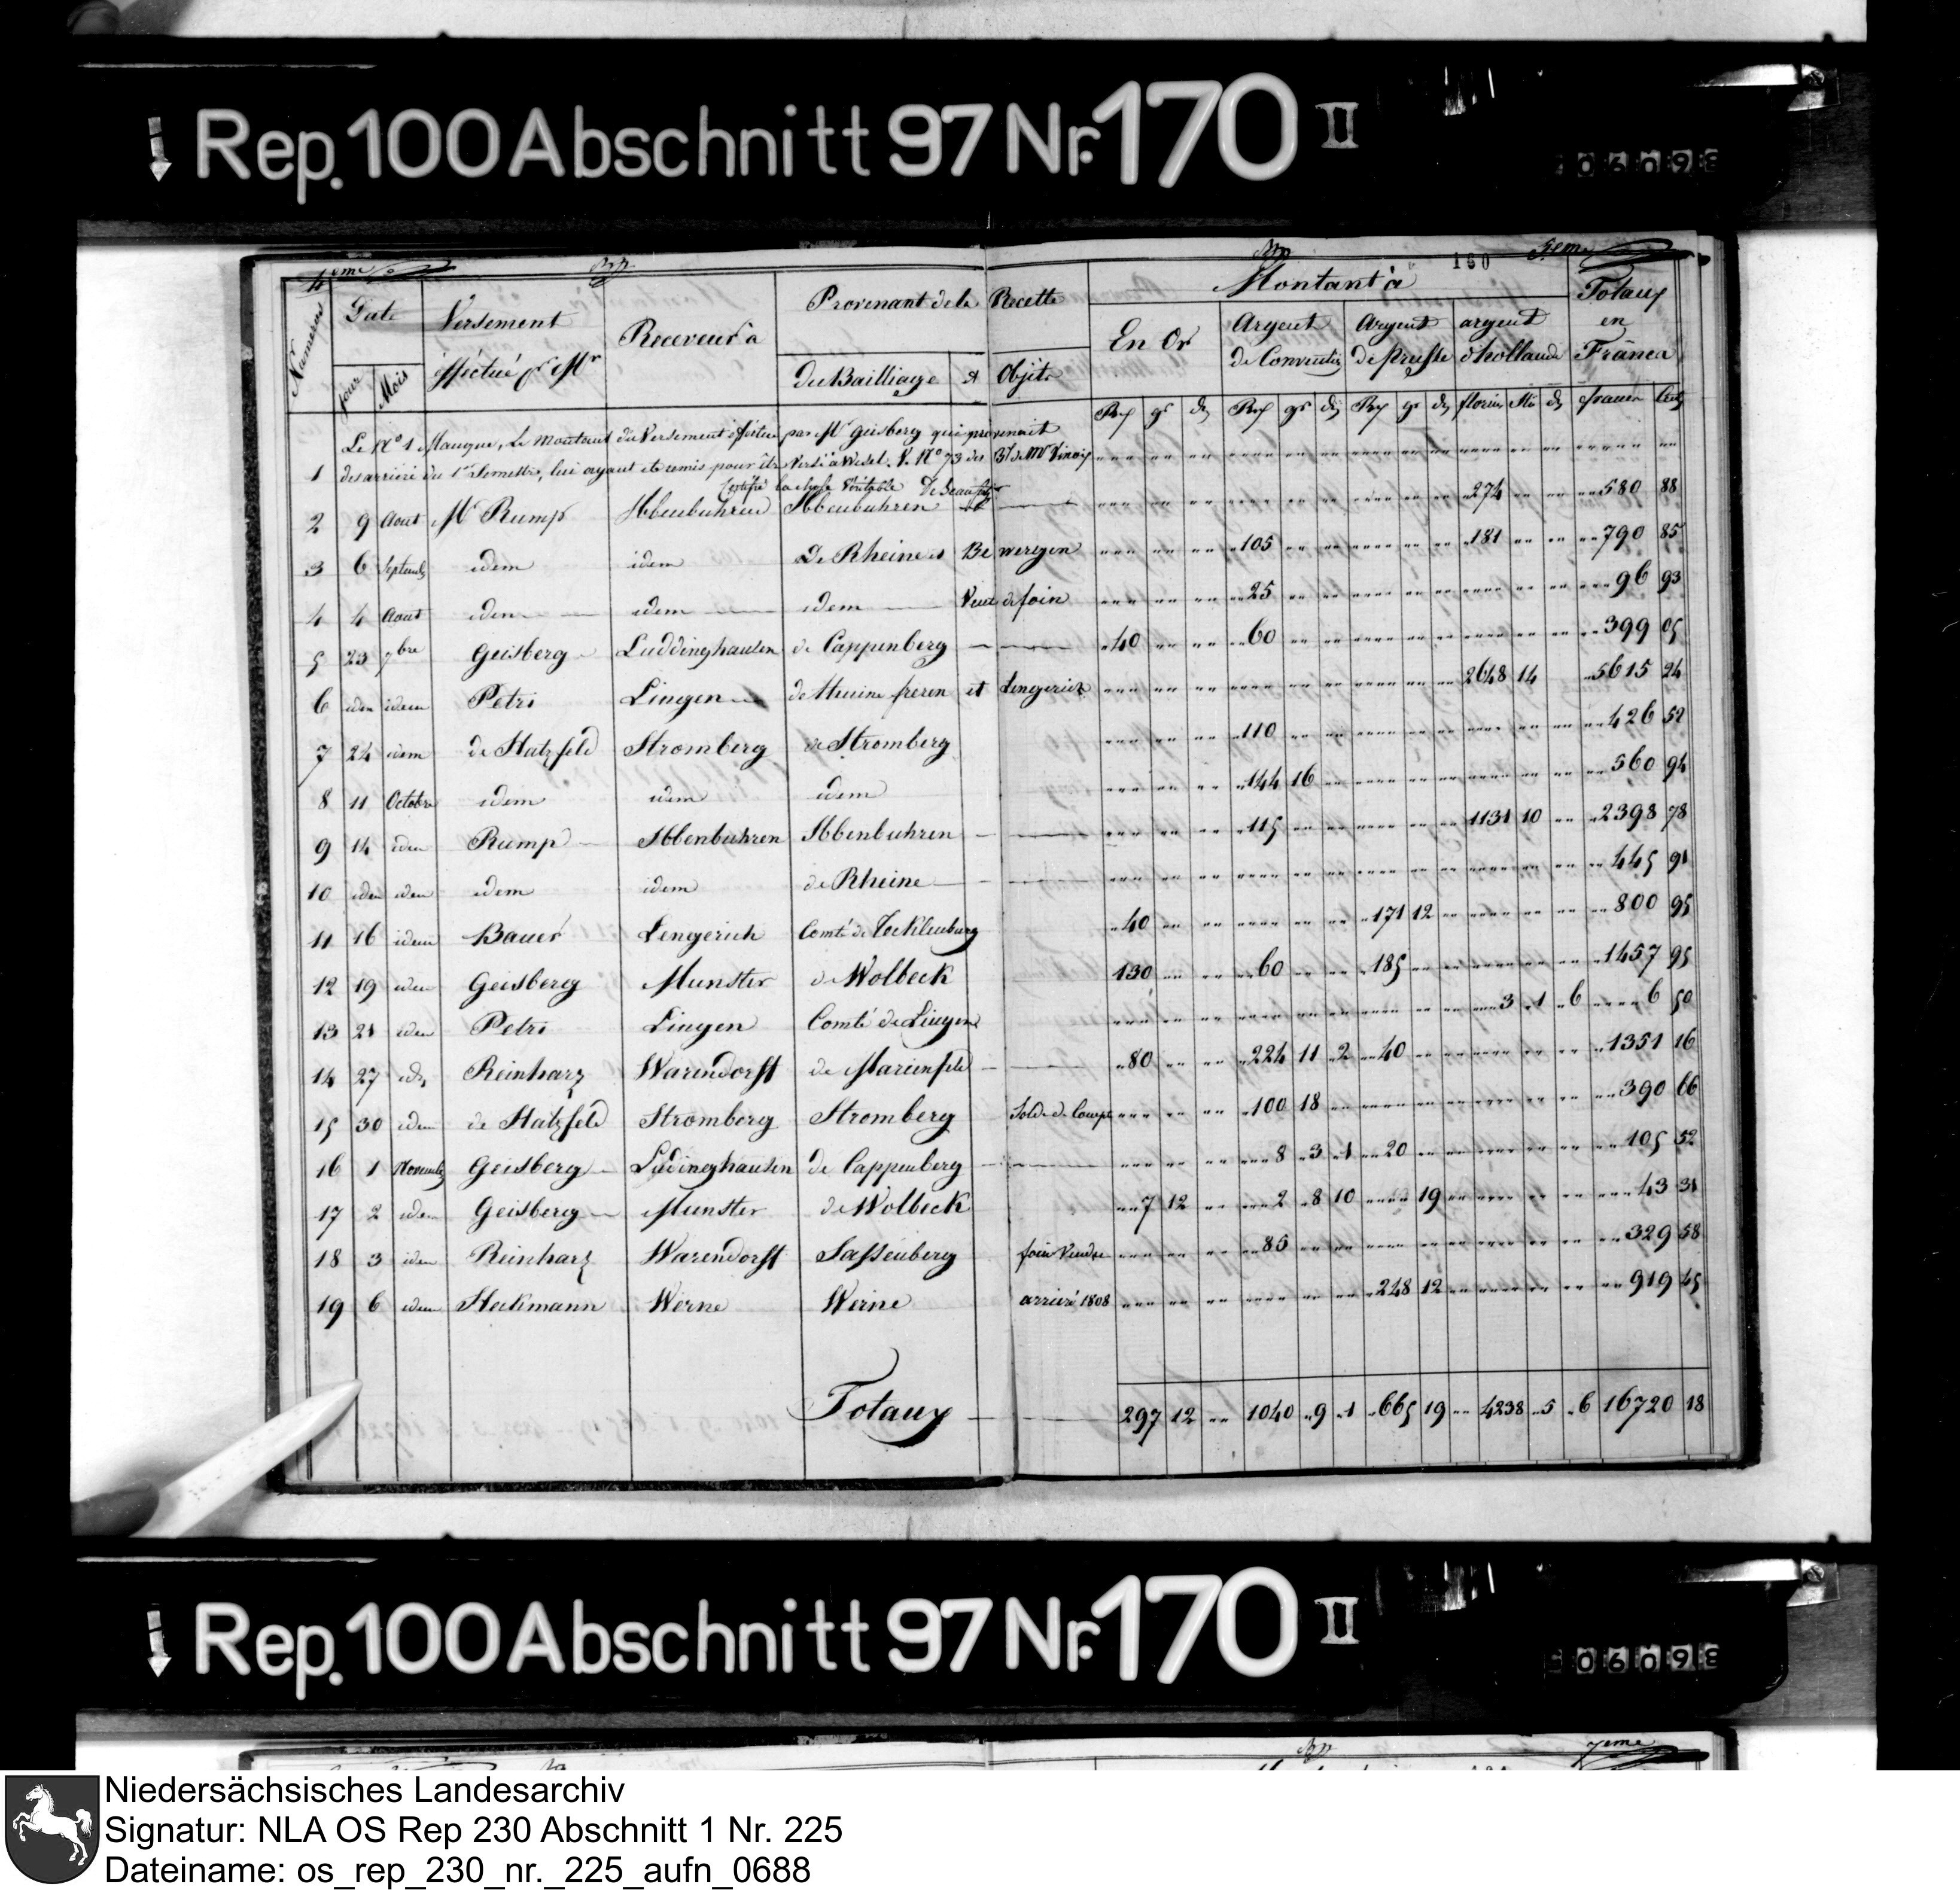 Rep. 100 Abschnitt 97 Nr. 170 II
4eme
160
5eme
Numeros
Date
Versement
Receveur à
Provenant de la Recette
Montant à
Totaux
Jour
Mois
éfféctué pr Mr
du Bailliage
et
Objèts
En Or
Argent de Convention
Argent de prusse
argent d'hollande
en Francs
gr
gr
gr
florins
francs
1 Le No 1 Manque, Le montant du Versement éfféctué par Mr Geisberg qui provenait
des arriéré du 1er Semestre, lui ayant été remis pour être Versé à Wesel. V. No 73 des
Certifié la chose Véritable
2 9 Aout Mr Rump Ibbenbuhren Ibbenbuhren 274 580 88
3 6 Septemb idem idem De Rheine et Bewergen 105 181 790 85
4 4 Aout idem idem idem Vente de foin 25 96 93
5 23 7bre Geisberg Luddinghausen de Cappenberg 40 60 399 05
6 idem idem Petri Lingen de Thuine freren et Lengerich 2648 14 5615 24
7 24 idem de Hatzfeld Stromberg de Stromberg 110 426 52
8 11 Octobre idem idem idem 144 16 560 94
9 14 idem Rump Ibbenbuhren Ibbenbuhren 1131 10 2398 78
10 idem idem idem idem de Rheine 115 445 91
11 16 idem Bauer Lengerich Comté de Tecklenburg 40 171 12 800 95
12 19 idem Geisberg Munster de Wolbeck 130 60 185 1457 95
13 21 idem Petri Lingen Comté de Lingen 3 1 6 6 50
14 27 id Reinharz Warendorff de Marienfeld 80 224 11 2 40 1351 16
15 30 idem de Hatzfeld Stromberg Stromberg Solde de Compte 100 18 390 66
16 1 Novemb Geisberg Ludinghausen de Cappenberg 8 3 1 20 105 52
17 2 idem Geisberg Munster de Wolbeck 7 12 2 8 10 19 43 31
18 3 idem Reinharz Warendorff Sassenberg foin Vendu 85 329 58
19 6 idem Heckmann Werne Werne arriéré 1808 248 12 919 45
Totaux 297 12 1040 9 1 665 19 4238 5 6 16720 18
Rep. 100 Abschnitt 97 Nr. 170 II
7eme
Niedersächsisches Landesarchiv
Signatur: NLA OS Rep 230 Abschnitt 1 Nr. 225
Dateiname: os_rep_230_nr._225_aufn_0688